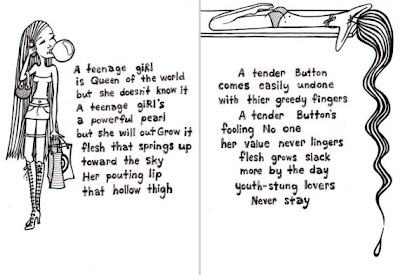 A teenage giRl
is Queen of the world
but she doesn't know it
A teenage giRl's
a powerful pearl
but she will outGrow it
flesh that springs up
toward the sky
Her pouting lip
that hollow thigh
A tender Button
comes easily undone
with thier greedy fingers
A tender Button's
fooling No one
her value never lingers
flesh grows slack
more by the day
youth-stung lovers
Never stay